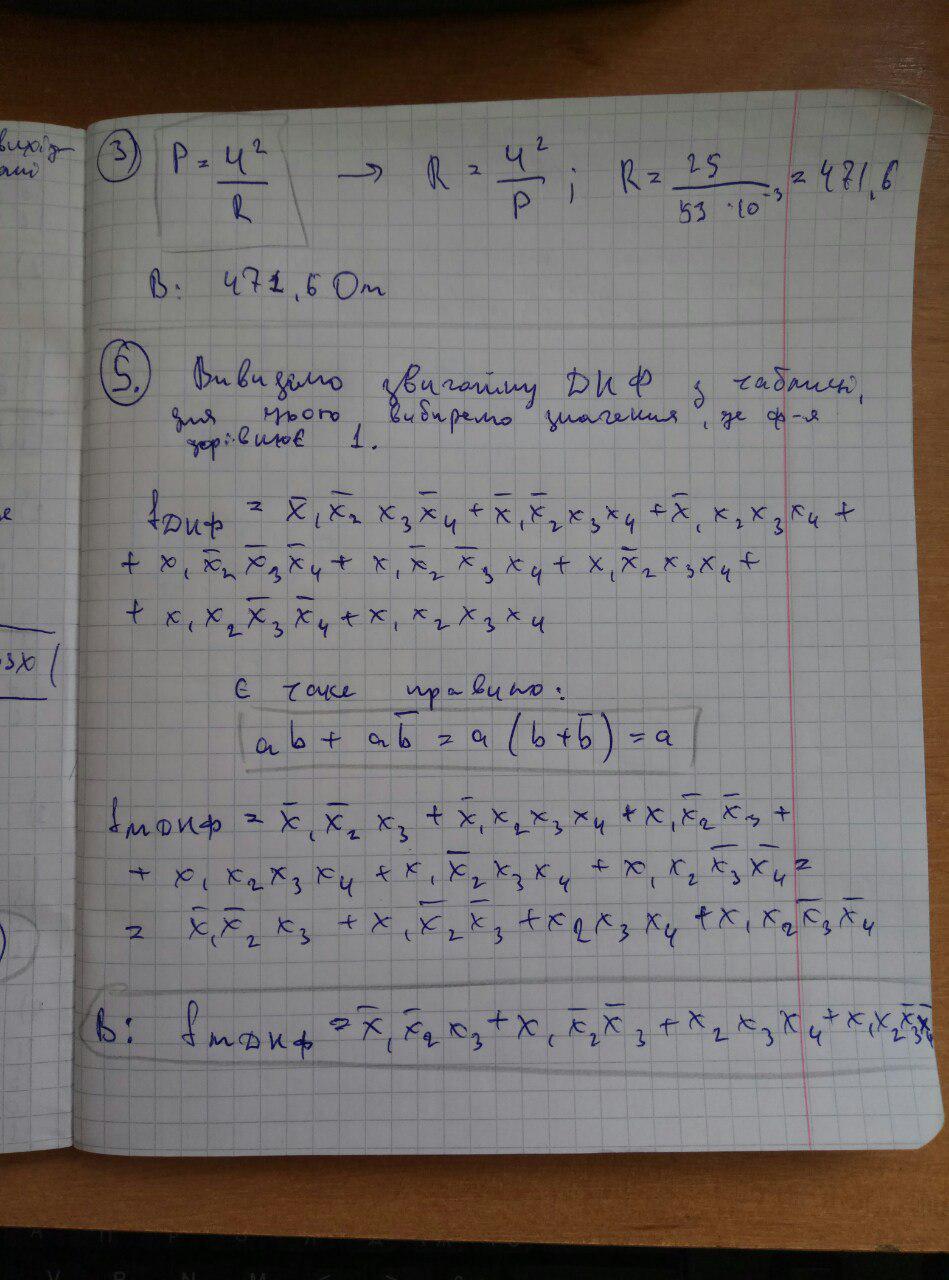 3) P = U² / R → R = U² / P ; R = 25 / 53 · 10⁻³ = 471,6
В: 471,6 Ом
5. Виведемо звичайну ДНФ з таблиці,
для цього виберемо значення, де ф-я
дорівнює 1.
f_ДНФ = x̄₁x̄₂x₃x̄₄ + x̄₁x̄₂x₃x₄ + x̄₁x₂x₃x₄ +
+ x₁x̄₂x̄₃x̄₄ + x₁x̄₂x̄₃x₄ + x₁x̄₂x₃x₄ +
+ x₁x₂x̄₃x̄₄ + x₁x₂x₃x₄
Є таке правило:
ab + ab̄ = a(b+b̄) = a
f_МДНФ = x̄₁x̄₂x₃ + x̄₁x₂x₃x₄ + x₁x̄₂x̄₃ +
+ x₁x₂x₃x₄ + x₁x̄₂x₃x₄ + x₁x₂x̄₃x̄₄ =
= x̄₁x̄₂x₃ + x₁x̄₂x̄₃ + x₂x₃x₄ + x₁x₂x̄₃x̄₄
В: f_МДНФ = x̄₁x̄₂x₃ + x₁x̄₂x̄₃ + x₂x₃x₄ + x₁x₂x̄₃x̄₄